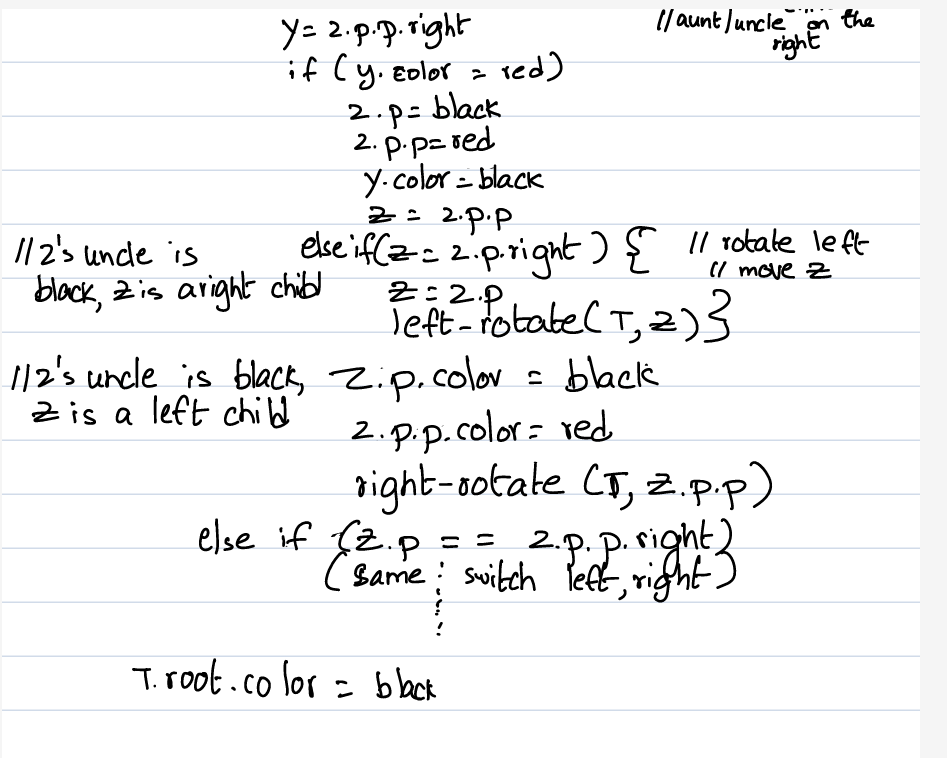 y = z.p.p.right //aunt/uncle on the right
if (y.color = red)
z.p = black
z.p.p = red
y.color = black
z = z.p.p
//z's uncle is black, z is a right child
else if (z = z.p.right) { // rotate left
// move z
z = z.p
left-rotate(T, z)}
//z's uncle is black, z.p.color = black
z is a left child
z.p.p.color = red
right-rotate (T, z.p.p)
else if (z.p == z.p.p.right)
(same : switch left, right)
T.root.color = black